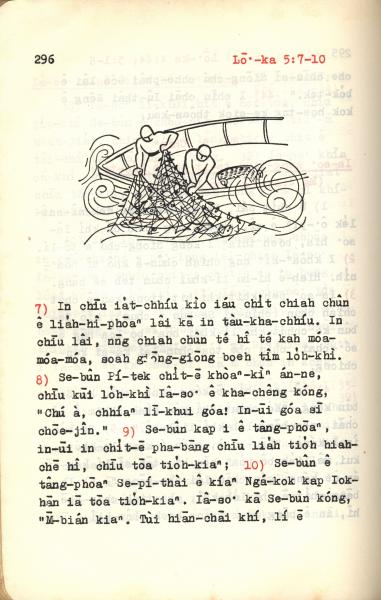 296
Lō͘-ka 5:7-10
7) In chīu ia̍t-chhíu kìo iáu chi̍t chiah chûn
ê lia̍h-hî-phōaⁿ lâi kā in tàu-kha-chhíu. In
chīu lâi, nn̄g chiah chûn té hî té kah móa-
móa-móa, soah giōng-giōng boeh tîm lo̍h-khì.
8) Se-bûn Pí-tek chi̍t-ē khòaⁿ-kìⁿ án-ne,
chīu kūi lo̍h-khì Iâ-so͘ ê kha-chêng kóng,
"Chú à, chhíaⁿ lī-khui góa! In-ūi góa sī
chōe-jîn." 9) Se-bûn kap i ê tâng-phōaⁿ,
in-ūi in chi̍t-ē pha-bāng chīu lia̍h tio̍h hiah-
chē hî, chīu tōa tio̍h-kiaⁿ; 10) Se-bûn ê
tâng-phōaⁿ Se-pí-thài ê kíaⁿ Ngá-kok kap Iok-
hān iā tōa tio̍h-kiaⁿ. Iâ-so͘ kā Se-bûn kóng,
"M̄-bián kiaⁿ. Tùi hiān-chāi khí, lí ē